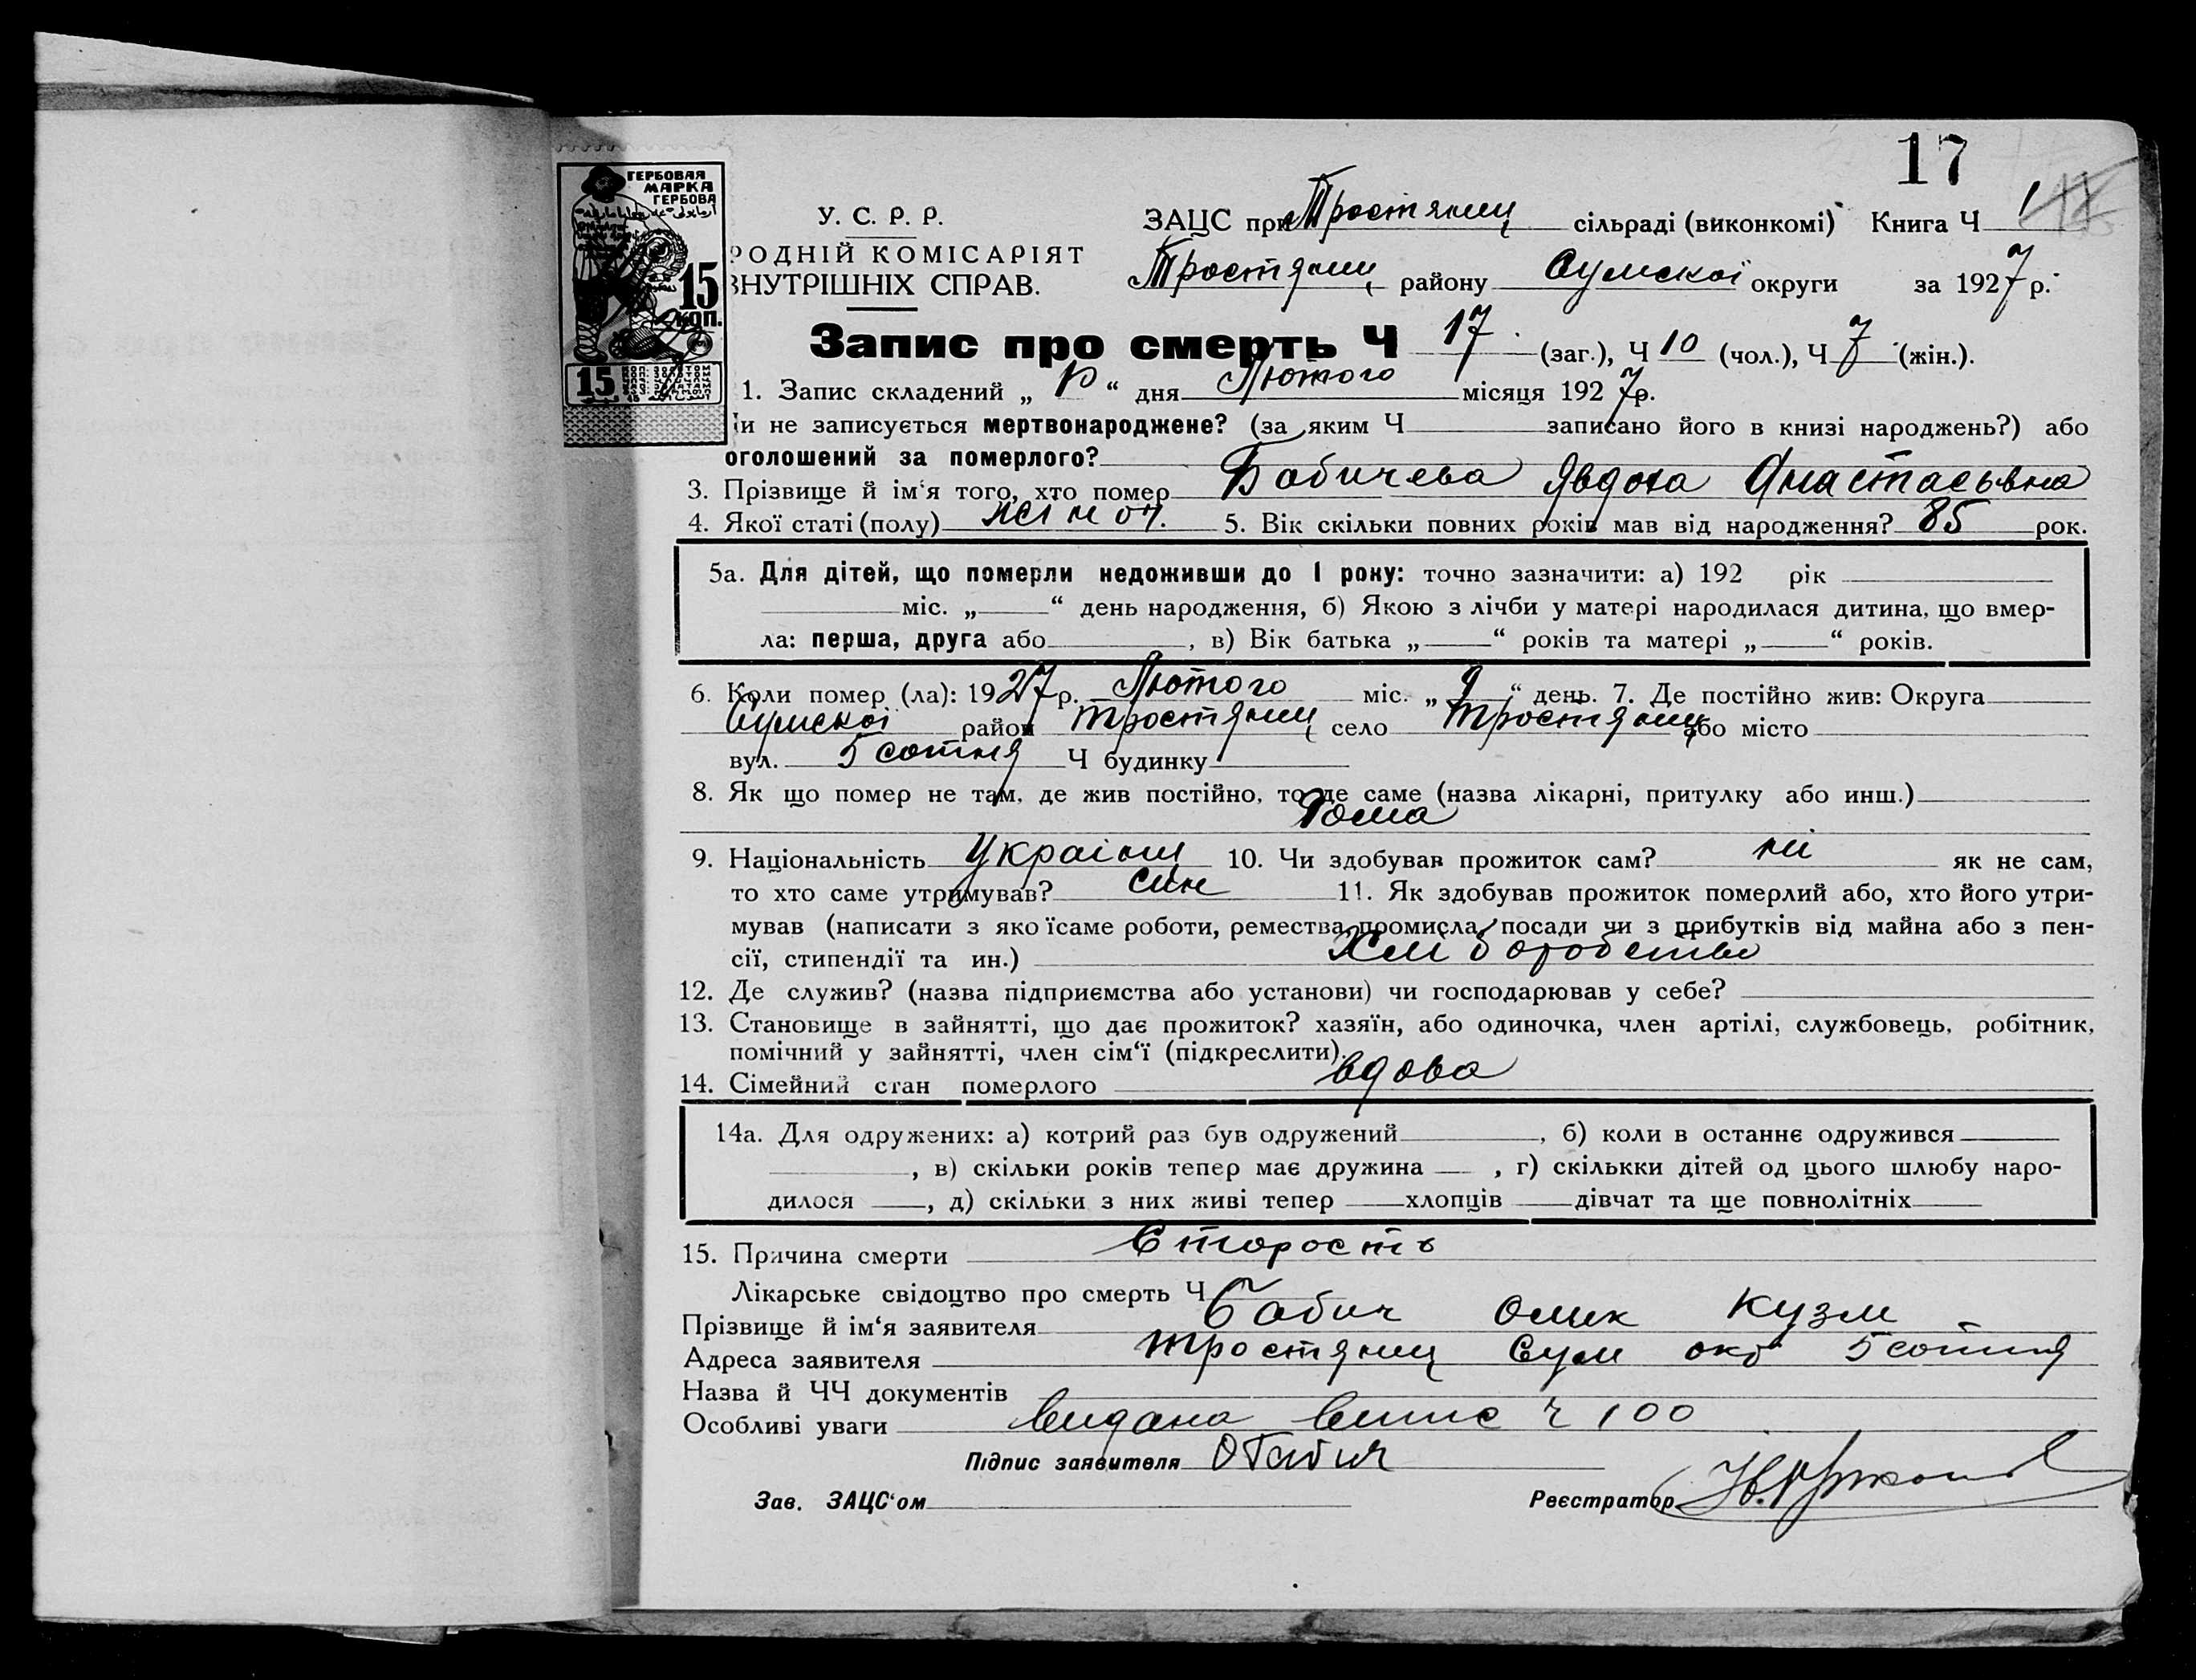 17
ГЕРБОВАЯ
МАРКА
ГЕРБОВА
15
КОП.
15
У. С. Р. Р.
РОДНІЙ КОМІСАРІЯТ
ВНУТРІШНІХ СПРАВ.
ЗАЦС при Тростянец сільраді (виконкомі) Книга Ч 1
Тростянец району Сумскоі округи за 1927 р.
Запис про смерть Ч 17 (заг.), Ч 10 (чол.), Ч 7 (жін.).
1. Запис складений „ “ дня Лютого місяця 1927 р.
и не записується мертвонароджене? (за яким Ч записано його в книзі народжень?) або
оголошений за померлого?
3. Прізвище й ім‘я того, хто помер Бабичева Явдоха Анастасьвна
4. Якої статі (полу) жіноч. 5. Вік скільки повних років мав від народження? 85 рок.
5а. Для дітей, що померли недоживши до 1 року: точно зазначити: а) 192 рік
міс. „ “ день народження, б) Якою з лічби у матері народилася дитина, що вмер-
ла: перша, друга або , в) Вік батька „ “ років та матері „ “ років.
6. Коли помер (ла): 1927 р. Лютого міс. „9“ день. 7. Де постійно жив: Округа
Сумскоі район Тростянец село Тростянец або місто
вул. 5 сотня Ч будинку
8. Як що помер не там, де жив постійно, то де саме (назва лікарні, притулку або инш.)
Дома
9. Національність Україн 10. Чи здобував прожиток сам? ні як не сам,
то хто саме утримував? син 11. Як здобував прожиток померлий або, хто його утри-
мував (написати з яко їсаме роботи, ремества, промисла, посади чи з прибутків від майна або з пен-
сії, стипендії та ин.) Хліборобство
12. Де служив? (назва підприємства або установи) чи господарював у себе?
13. Становище в зайнятті, що дає прожиток? хазяїн, або одиночка, член артілі, службовець, робітник,
помічний у зайнятті, член сім‘ї (підкреслити).
14. Сімейний стан померлого вдова
14а. Для одружених: а) котрий раз був одружений , б) коли в останнє одружився
, в) скільки років тепер має дружина , г) скількки дітей од цього шлюбу наро-
дилося , д) скільки з них живі тепер хлопців дівчат та ще повнолітніх
15. Причина смерти Старость
Лікарське свідоцтво про смерть Ч
Прізвище й ім‘я заявителя Бабич Омек Кузм
Адреса заявителя Тростянец Сум окр 5 сотня
Назва й ЧЧ документів
Особливі уваги Видана Випис ч 100
Підпис заявителя О Бабич
Зав. ЗАЦС‘ом Реєстратор